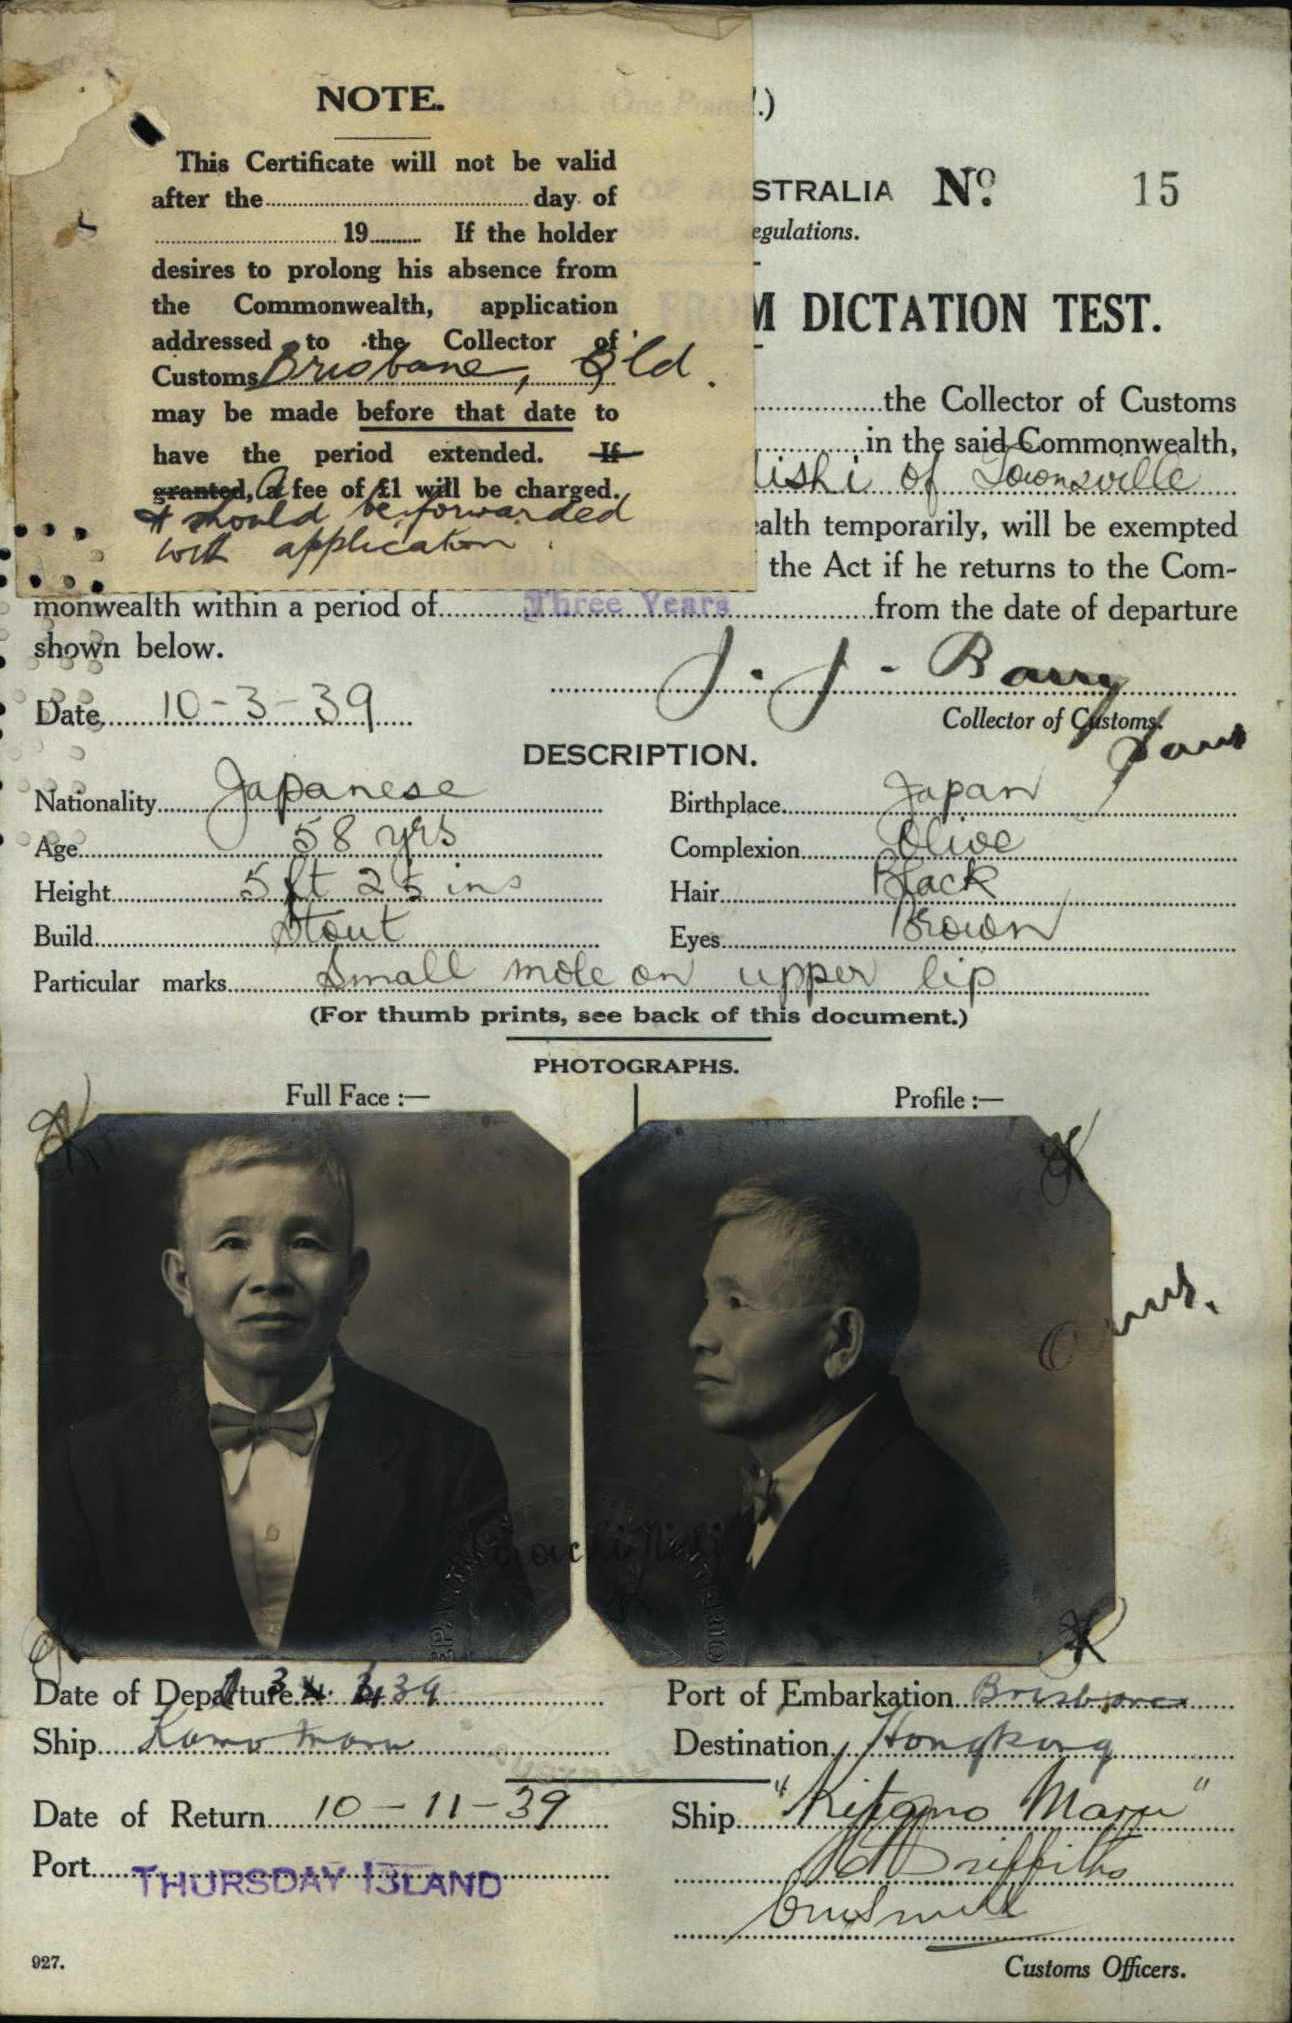 NOTE.
This Certificate will not be valid
after the.............day of
.............19....... If the holder
desires to prolong his absence from
the Commonwealth, application
addressed to the Collector of
Customs Brisbane, Qld.
may be made before that date to
have the period extended. If
granted, A fee of £1 will be charged.
& should be forwarded
with application.
STRALIA No. 15
egulations.
M DICTATION TEST.
the Collector of Customs
in the said Commonwealth,
ishi of Townsville
alth temporarily, will be exempted
the Act if he returns to the Com-
monwealth within a period of Three Years from the date of departure
shown below.
J. J. Barry
Date 10-3-39
Collector of Customs.
DESCRIPTION.
Nationality Japanese Birthplace Japan
Age 58 yrs Complexion Olive
Height 5 ft 2 ins Hair Black
Build Stout Eyes Brown
Particular marks Small mole on upper lip
(For thumb prints, see back of this document.)
PHOTOGRAPHS.
Full Face :— Profile :—
Date of Departure 39 Port of Embarkation Brisbane
Ship Kamo Maru Destination Hongkong
Date of Return 10-11-39 Ship "Kitano Maru"
Port THURSDAY ISLAND
Griffiths
Customs Officers.
927.